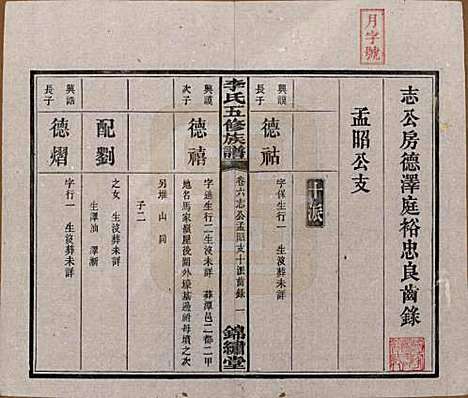 月字號
志公房德澤庭裕忠良齒錄
孟昭公支
十派
興謨
長子
德祜
字保生行一生沒葬未詳
李氏五修族譜
卷六志公孟昭支十派齒錄
一
錦繡堂
興謨
次子
德禧
字通生行二生沒未詳
葬潭邑二都二甲
地名馬家嶺屋後圍外壕基母墳之次
另堆
山同
子二
配劉
之女
生沒葬未詳
生澤油
澤漸
興誥
長子
德熠
字行一生沒葬未詳